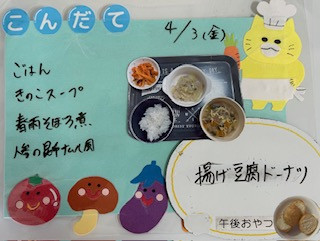 こんだて
4/3(金)
ごはん
きのこスープ
春雨そぼろ煮
人参の昆布ナムル風
揚げ豆腐ドーナツ
午後おやつ